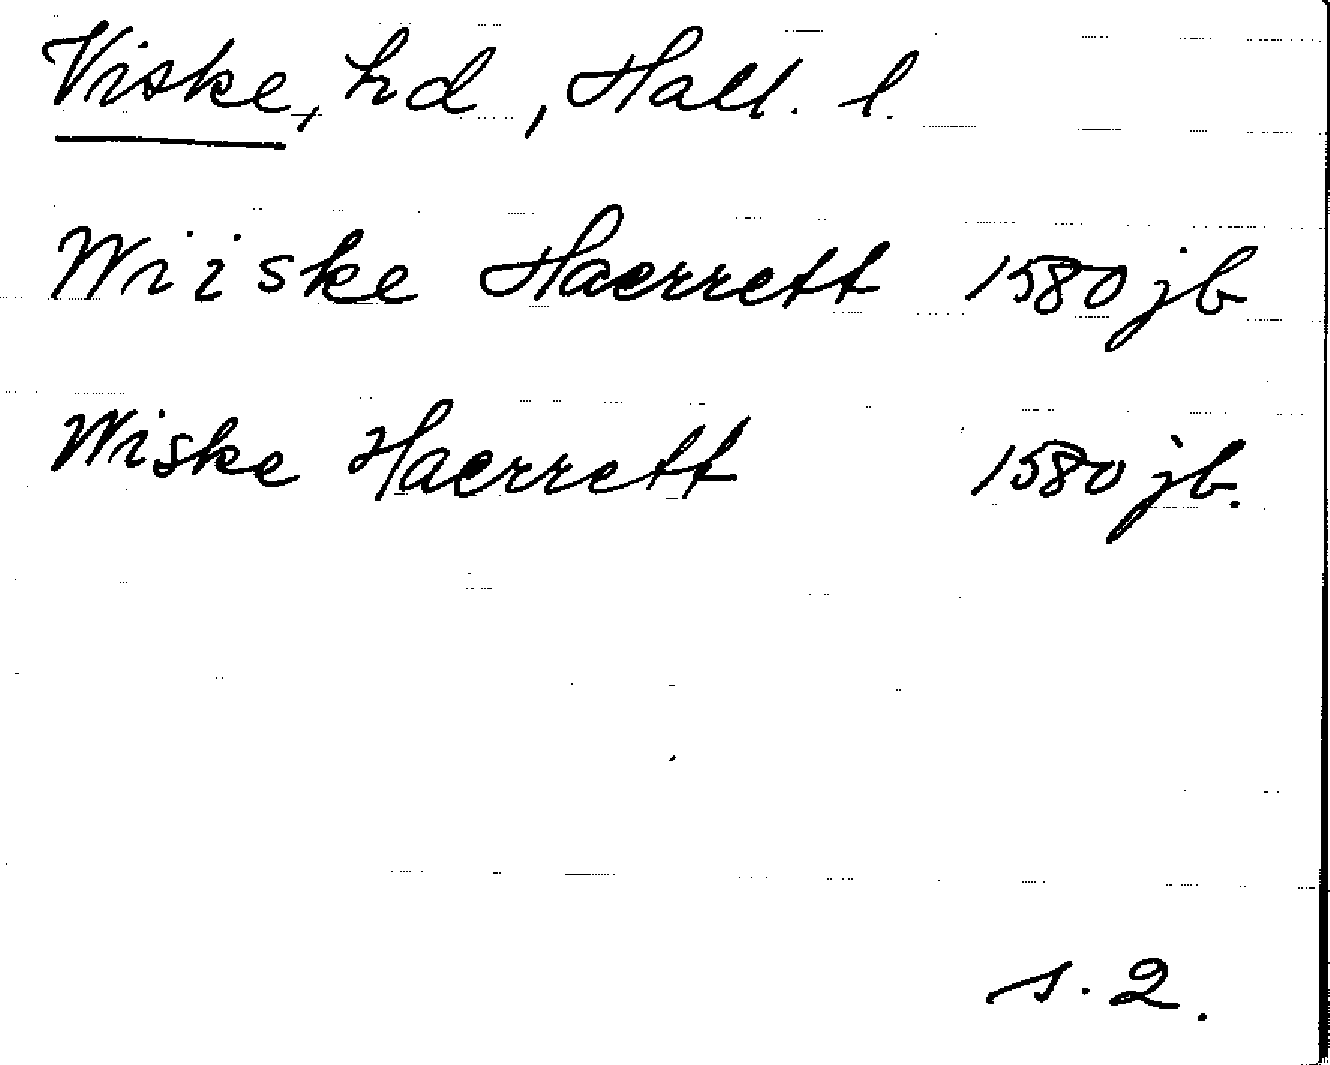 Viske, hd, Hall. l.
Wiiske Haerrett 1580 jb
Wiske Haerrett 1580 jb.
s. 2.